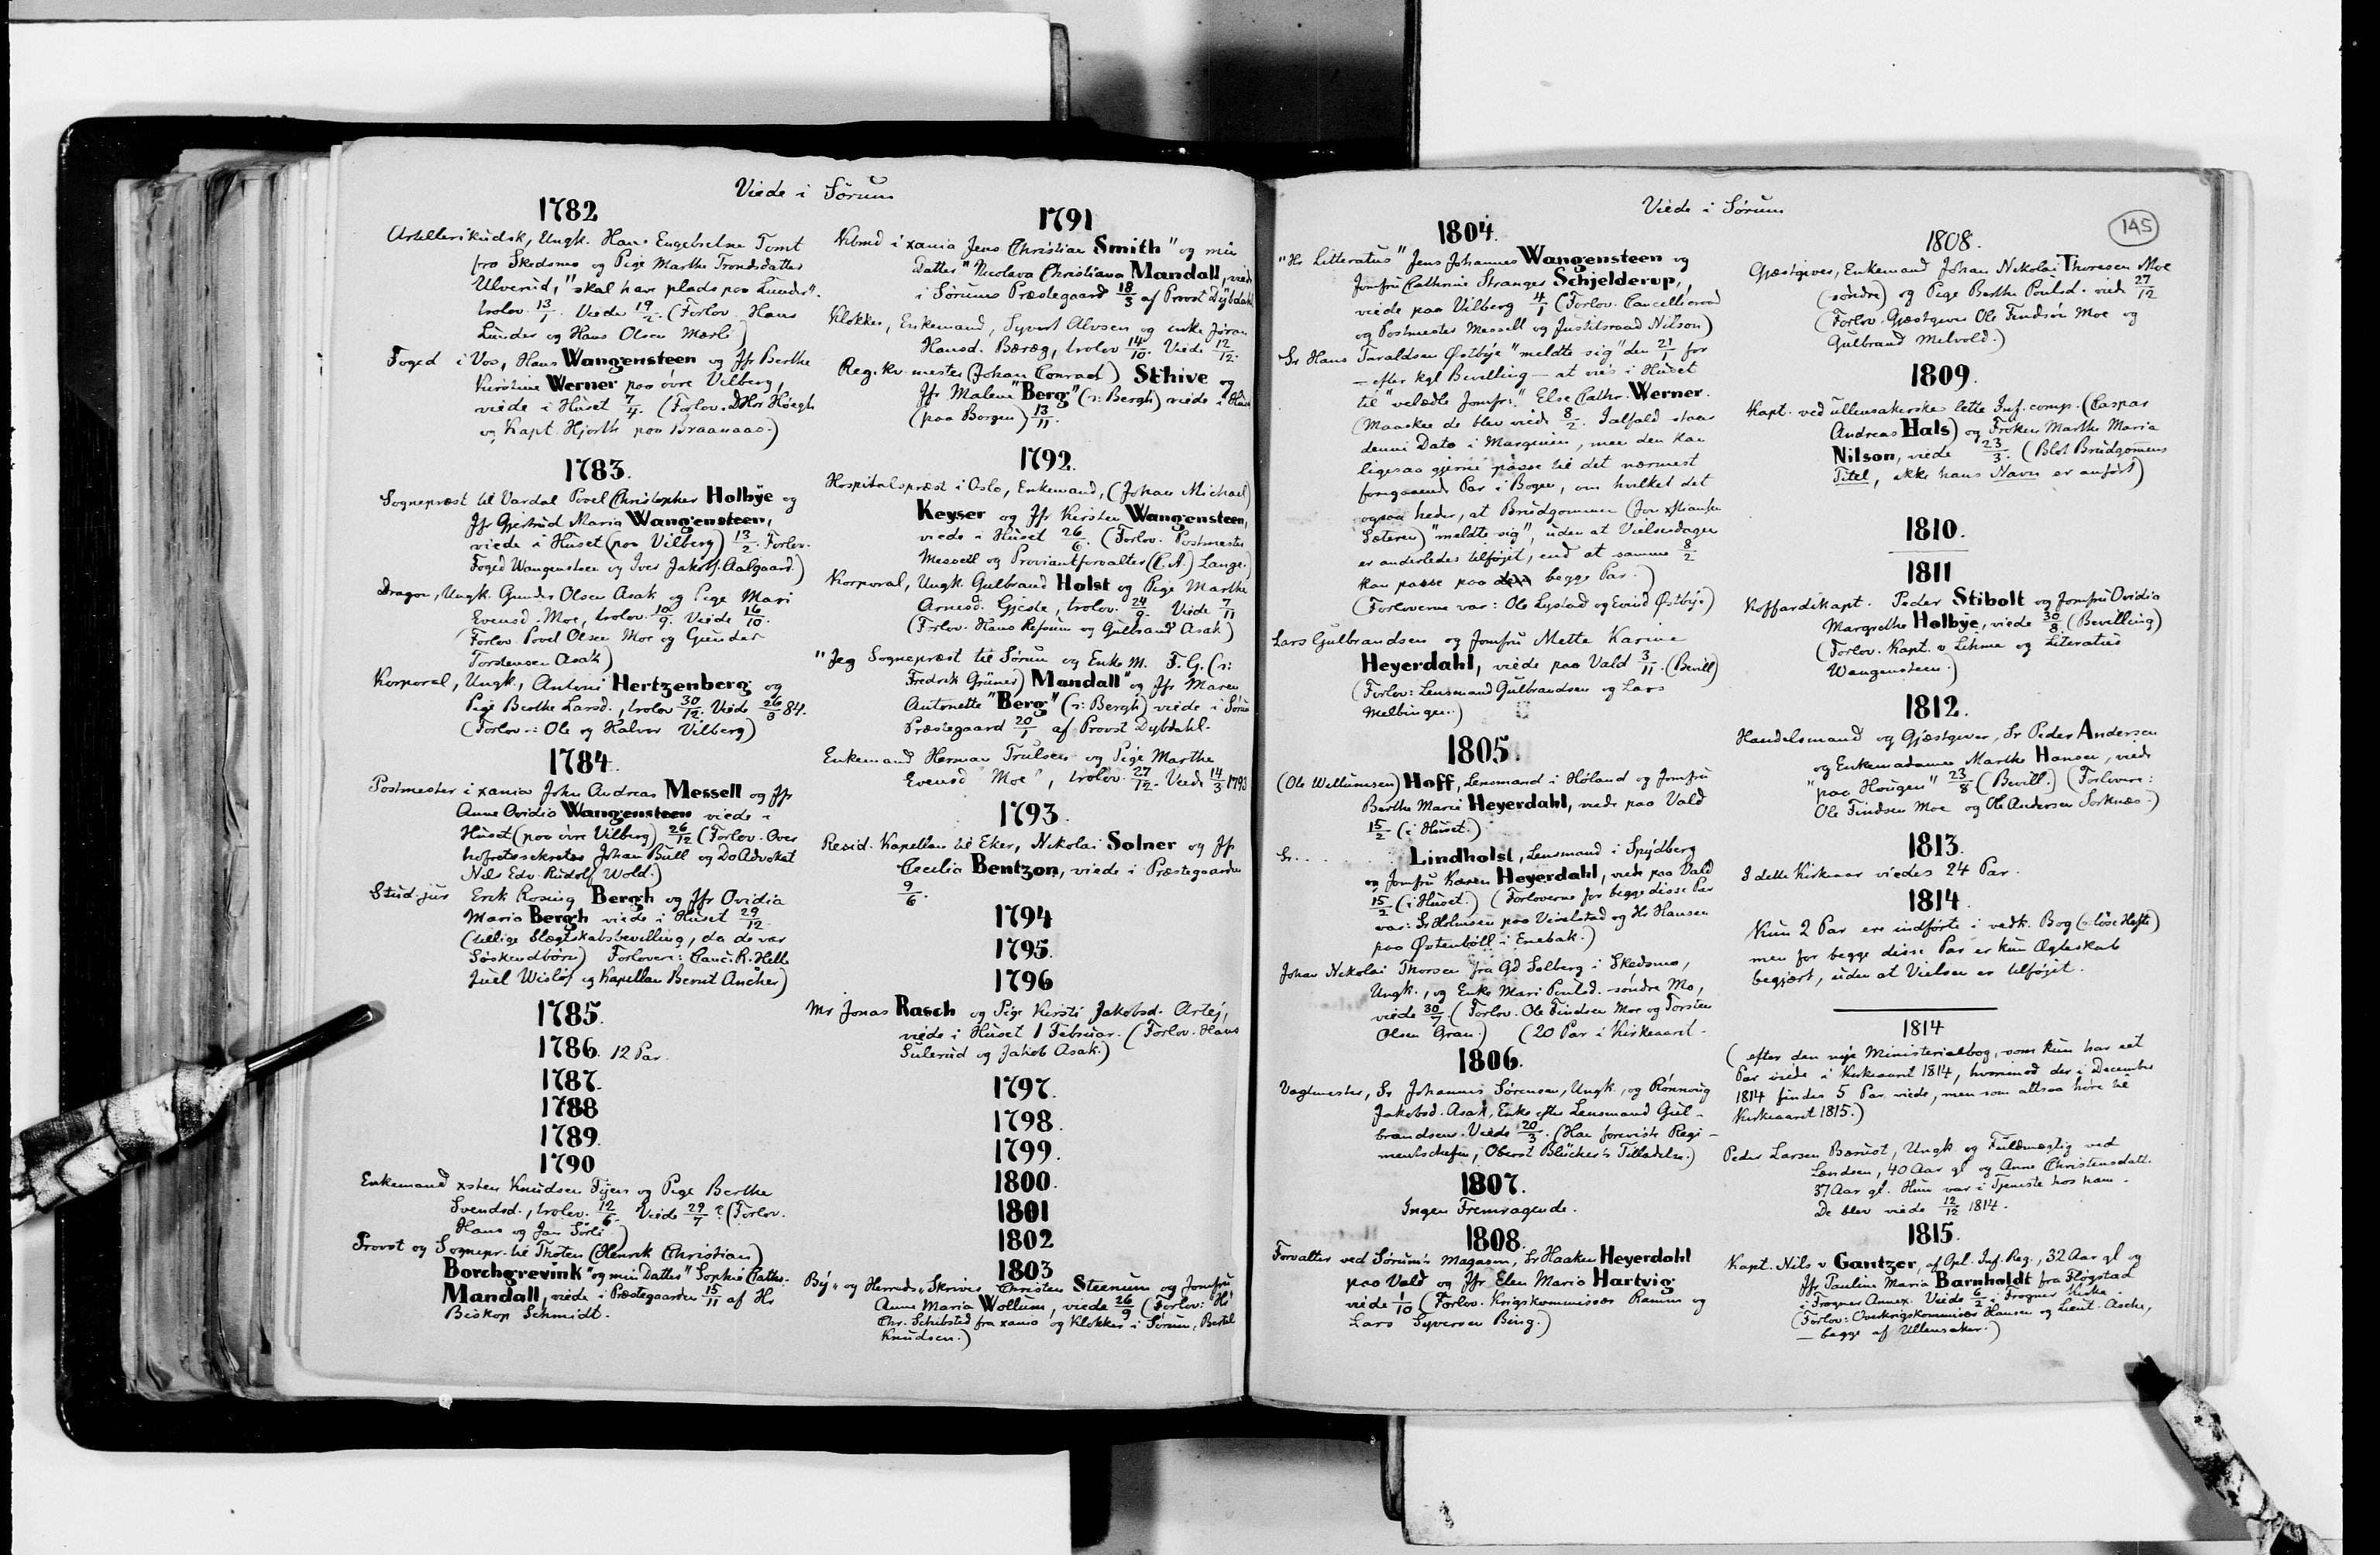 Viede i Sörum
1782
Artillerikudsk, Ungk. Hans Engebretsen Tomt
fra Skedsmo og Pige Marthe Trondsdatter
Ulverud, "skal har plads paa Lunder".
trolov. 13/1. Viede 19/2. (Forlov. Hans
Lunder og Hans Olsen Mærli)
Foged i Vos, Hans Wangensteen og Jfr Berthe
Kirstine Werner paa övre Vilberg,
viede i Huset 7/4. (Forlov. DHrr Höegh
og Kapt. Hjorth paa Braanaas.)
1783.
Sognepræst til Vardal Povel Christopher Holbye og
Jfr Gjertrud Maria Wangensteen,
viede i Huset (paa Vilberg) 13/2. Forlov.
Foged Wangensteen og Iver Jakobs. Aalgaard.)
Dragon, Ungk. Gunder Olsen Asak og Pige Mari
Evensd. Moe, trolov. 10/9. Viede 16/10.
(Forlov. Povel Olsen Moe og Gunder
Torstensen Asak)
Korporal, Ungk., Antoni Hertzenberg og
Pige Berthe Larsd., trolov 30/12. Viede 26/3 84.
(Forlov.: Ole og Halvor Vilberg)
1784.
Postmester i xania John Andreas Messell og Jfr
Anne Ovidia Wangensteen viede i
Huset (paa övre Vilberg) 26/12 (Forlov. Over
hofretssekretær Johan Bull og Do Advokat
Nils Edv. Rudolf Wold.)
Stud. jur Erik Rosing Bergh og Jfr Ovidia
Maria Bergh viede i Huset 29/12
(tillige Slægtskabsbevilling, da de var
Söskendbörn) Forlovere: Canc. R. Helle
Juel Wislöf og Kapellan Bernt Ancher)
1785.
1786. 12 Par.
1787.
1788
1789.
1790
Enkemand xsten Knudsen Fijen og Pige Berthe
Svendsd., trolov. 12/6. Viede 29/7? (Forlov.
Hans og Jan Sörli)
Provst og Sognepr. til Thoten (Henrik Christian)
Borchgrevink "og min Datter" Sophie Cathr.
Mandall, viede i Præstegaarden 15/11 af Hr
Biskop Schmidt.
1791
Kbmd i xania Jens Christian Smith "og min
Datter" Nicolava Christiana Mandall, viede
i Sörums Præstegaard 18/3 af Provst Dybdahl
Klokker, Enkemand, Syvert Alvsen og enke Jöran
Hansd. Bæræg, trolov 14/10. Viede 12/12.
Reg. kv. mester (Johan Conrad) Schive og
Jfr Malene "Berg" (ɔ: Bergh) viede i Huset
(paa Borgen) 13/11.
1792.
Hospitalspræst i Oslo, Enkemand, (Johan Michael)
Keyser og Jfr Kirsten Wangensteen,
viede i Huset 26/6. (Forlov. Postmester
Messell og Proviantforvalter (C. A.) Lange.)
Korporal, Ungk. Gulbrand Holst og Pige Marthe
Arnesd. Gjeste, trolov. 24/9. Viede 7/11
(Frlov. Hans Refsum og Gulbrand Asak)
"Jeg Sognepræst til Sörum og Enkem. F. G. (ɔ:
Fredrik Grüner) Mandall" og Jfr Maren
Antonette "Berg" (ɔ: Bergh) viede i Sörum
Præstegaard 20/1 af Provst Dybdahl.
Enkemand Herman Trulsen og Pige Marthe
Evensd "Moe", trolov. 27/12. Viede 14/3 1793
1793.
Resid. Kapellan til Eker, Nikolai Solner og Jfr
Cecilia Bentzon, viede i Præstegaarden
9/6.
1794
1795.
1796
Mr Jonas Rasch og Pige Kirsti Jakobsd. Artej,
viede i Huset 1 Februar. (Forlov. Hans
Sulerud og Jakob Asak.)
1797.
1798.
1799.
1800.
1801
1802
1803
By- og Herreds-Skriver Christen Steenum og Jomfru
Anne Maria Wollum, viede 26/9 (Forlov: Hr
Chr. Schibsted fra xania og Klokker i Sörum, Bertel
Knudsen.)
Viede i Sörum
145
1804.
"Hr Litteratus" Jens Johannes Wangensteen og
Jomfru Cathrine Stranger Schjelderup,
viede paa Vilberg 4/1 (Forlov. Cancelliraad
og Postmester Messell og Justitsraad Nilson)
Sr Hans Taraldsen Østbye "meldte sig" den 21/1 for
— efter kgl Bevilling — at vies i Huset
til "velædle Jomfr:" Else Cathr. Werner.
(Maaskee de blev viede 8/2. Ialfald staar
denne Dato i Marginen, men den kan
ligesaa gjerne passe til det nærmest
foregaaende Par i Bogen, om hvilket det
ogsaa heder, at Brudgommen (Jon xstiansen
Sæteren) "meldte sig", uden at Vielsesdagen
er anderledes tilföjet, end at samme 8/2
kan passe paa begge Par.)
(Forloverne var: Ole Lystad og Evind Østbye)
Lars Gulbrandsen og Jomfru Mette Karine
Heyerdahl, viede paa Vald 3/11. (Bevill)
(Forlov: Lensmand Gulbrandsen og Lars
Melbingen.)
1805.
(Ole Willumsen) Hoff, Lensmand i Höland og Jomfru
Berthe Marie Heyerdahl, viede paa Vald
15/2 (i Huset.)
Sr. . . . Lindholst, Lensmand i Spydberg
og Jomfru Karen Heyerdahl, viede paa Vald
15/2 (i Huset.) (Forloverne for begge disse Par
var: Sr Holmsen paa Vivelstad og Hr Hansen
paa Østenböll i Enebak.)
Johan Nikolai Thorsen fra Gd Solberg i Skedsmo,
Ungk., og Enke Mari Poulsd. söndre Mo,
viede 30/7 (Forlov. Ole Findsen Moe og Torsten
Olsen Gran.) (20 Par i Kirkeaaret.
1806.
Vagtmester, Sr Johannes Sörensen, Ungk., og Rönnoug
Jakobsd. Asak, Enke efter Lensmand Gul-
brandsen. Viede 20/3. (Han foreviste Regi-
mentschefen, Oberst Blücher's Tilladelse.)
1807.
Ingen Fremragende.
1808.
Forvalter ved Sörum's Magasin, Sr Haaken Heyerdahl
paa Vald og Jfr Elen Maria Hartvig
viede 1/10 (Forlov. Krigskommissær Ramm og
Lars Syversen Bing.)
1808.
Gjæstgiver, Enkemand Johan Nikolai Thoresen Moe
(söndre) og Pige Berthe Poulsd. viede 27/12
(Forlov. Gjæstgiver Ole Findsön Moe og
Gulbrand Melvold.)
1809.
Kapt. ved ullensakerske lette Inf. comp. (Caspar
Andreas Hals) og Fröken Marthe Maria
Nilson, viede 23/3. (Blot Brudgommens
Titel, ikke hans Navn er anfört)
1810.
1811
Koffardikapt. Peder Stibolt og Jomfru Ovidia
Margrethe Holbye, viede 30/8. (Bevilling)
(Forlov. Kapt. v. Lihme og Literatus
Wangensteen.)
1812.
Handelsmand og Gjæstgiver, Sr Peder Andersen
og Enkemadame Marthe Hansen, viede
"paa Hougen" 23/8 (Bevill.) (Forlovere:
Ole Findsen Moe og Ole Andersen Sorknæs.)
1813.
I dette Kirkeaar viedes 24 Par.
1814.
Kun 2 Par ere indförte i vedk. Bog (ɔ: löse Hefte)
men for begge disse Par er kun Ægteskab
begjært, uden at Vielsen er tilföjet.
1814
(efter den nye Ministerialbog, som kun har eet
Par viede i Kirkeaaret 1814, hvorimod der i December
1814 findes 5 Par viede, men som altsaa höre til
Kirkeaaret 1815.)
Peder Larsen Bærust, Ungk og Fuldmægtig ved
Lændsen, 40 Aar gl og Anne Christensdatt.
37 Aar gl. Hun var i Tjeneste hos ham.
De blev viede 12/12 1814.
1815.
Kapt. Nils v Gantzer, af Opl. Inf. Reg., 32 Aar gl og
Jfr Pauline Maria Barnholdt fra Fløgstad
i Frogner Annex. Viede 6/2 i Frogner Kirke.
(Forlov: Overkrigskommissær Hansen og Lieut. Asche,
— begge af Ullensaker.)